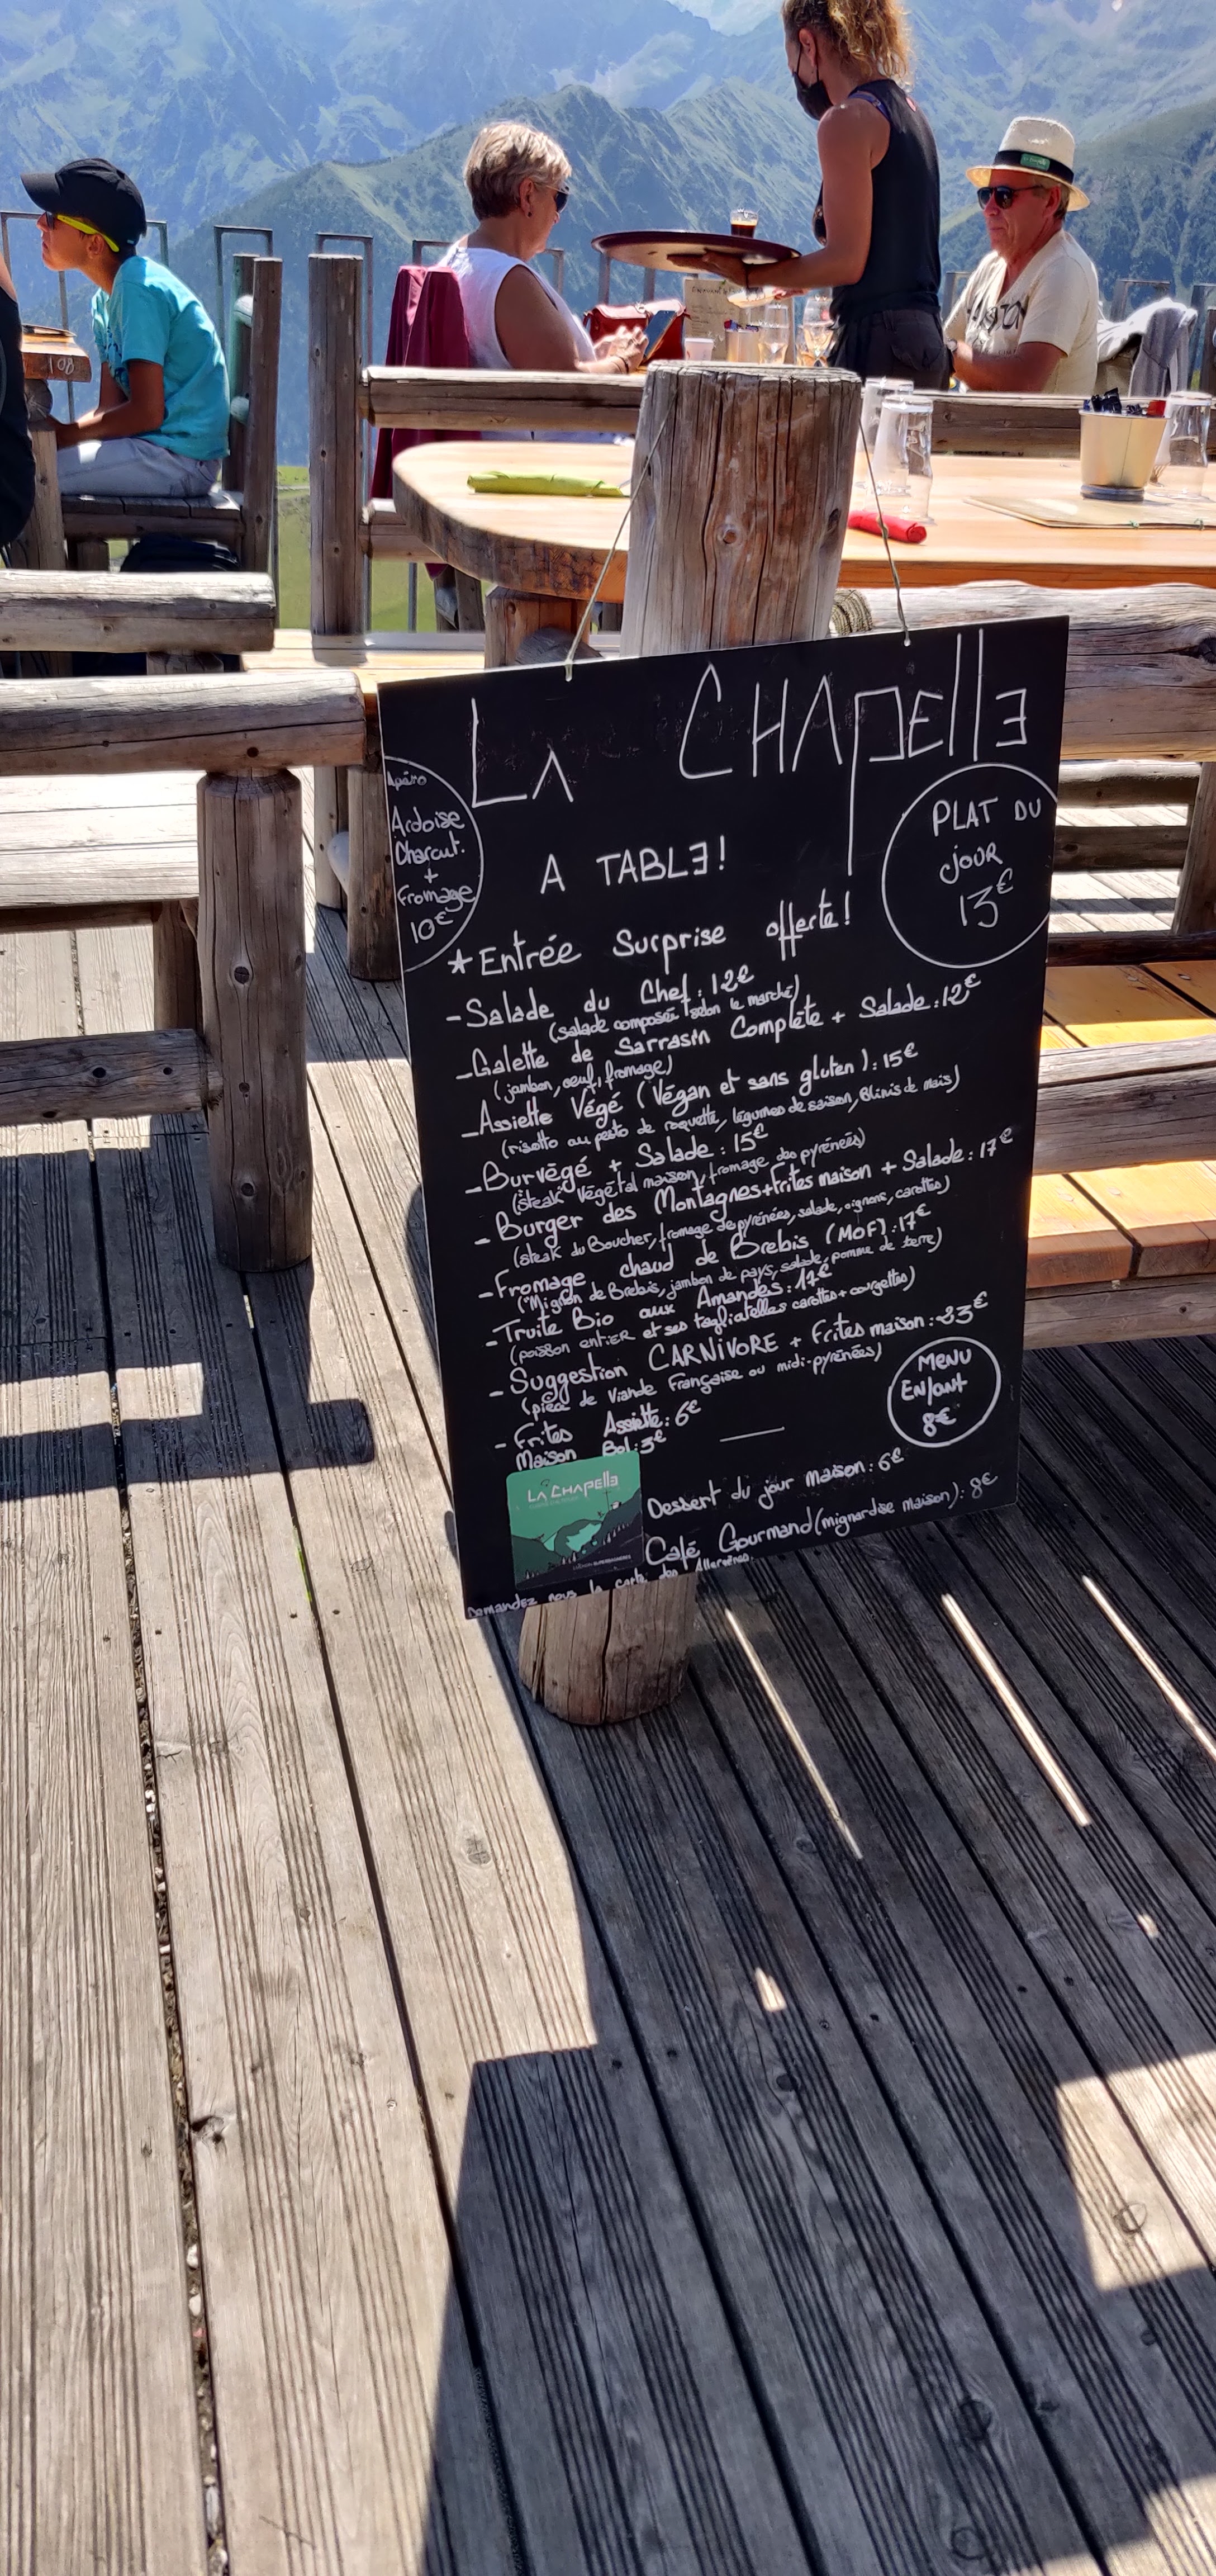 108
La CHApelle
Apéro
Ardoise
Charcut.
+
fromage
10€
PLAT DU
jOUR
13€
A TABLE!
* Entrée Surprise offerte!
- Salade du Chef : 12€
(salade composée selon le marché)
- Galette de Sarrasin Complète + Salade : 12€
(jambon, oeuf, fromage)
- Assiette Végé (Végan et sans gluten) : 15€
(risotto au pesto de roquette, légumes de saison, Blinis de maïs)
- Burvégé + Salade : 15€
(steak Végétal maison, fromage des pyrénées)
- Burger des Montagnes + frites maison + Salade : 17€
(steak du Boucher, fromage de pyrénées, salade, oignons, carottes)
- Fromage chaud de Brebis (MOF) : 17€
("Mignon de Brebis, jambon de pays, salade, pomme de terre)
- Truite Bio aux Amandes : 17€
(poisson entier et ses tagliatelles carottes + courgettes)
- Suggestion CARNIVORE + Frites maison : 23€
(pièce de Viande Française ou midi-pyrénées)
- Frites Assiette : 6€
Maison Bol : 3€
MENU
Enfant
8€
LA CHApelle
LUCHON SUPERBAGNERES
Dessert du jour Maison : 6€
Café Gourmand (mignardise Maison) : 8€
Demandez nous la carte des Allergènes.